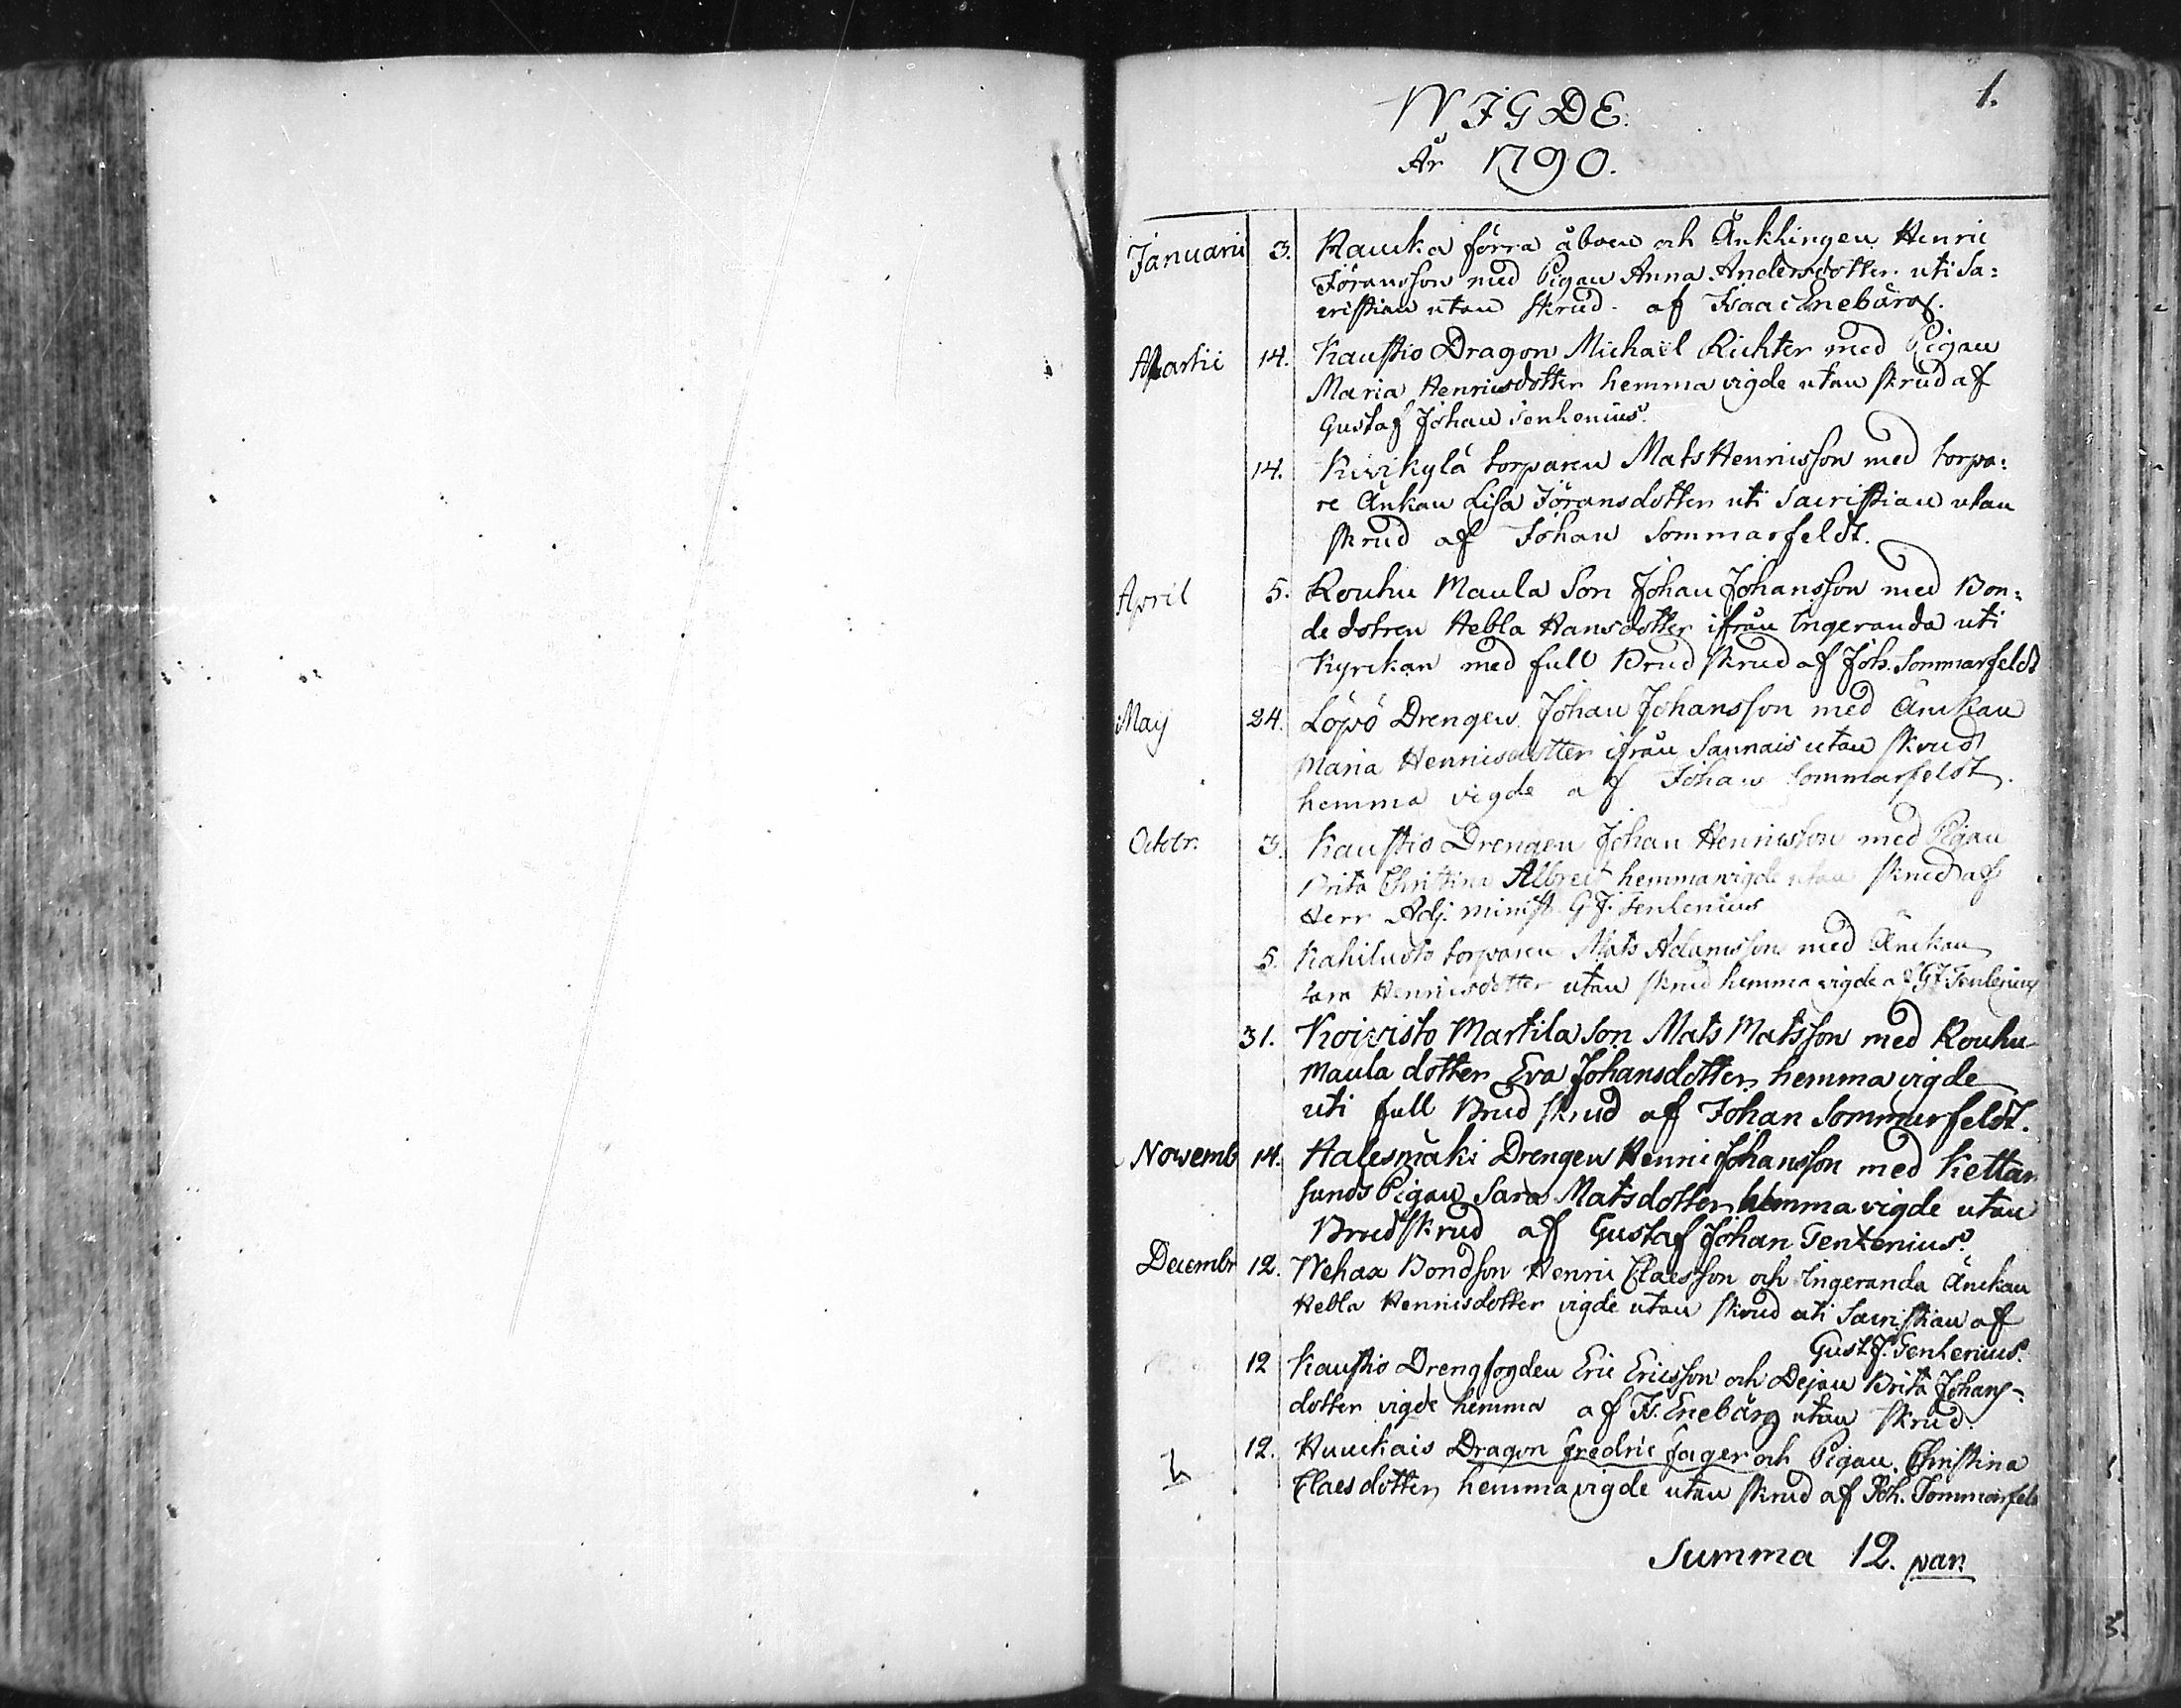 1.
WIGDE.
År 1790.
Januarii 3. Rauka förra åboen och Änklingen Henric
Jöransson med Pigan Anna Andersdotter uti Sa:
cristian utan skrud af Isaac Enebärg.
Martii 14. Kaustio Dragon Michaël Richter med Pigan
Maria Henricsdotter hemma vigde utan skrud af
Gustaf Johan Tenlenius.
14. Kivikylä torparen Mats Henricsson med torpa:
re Änkan Lisa Jöransdotter uti Sacristian utan
skrud af Johan Sommarfeldt.
April 5. Rouhu Maula Son Johan Johansson med Bon:
de dotren Hebla Hansdotter ifrån Ingeranda uti
Kyrckan med full Brud skrud af Joh. Sommarfeldt
May 24. Löpö Drengen Johan Johansson med Änckan
Maria Henricsdotter ifrån Sannais utan skrud
hemma vigde af Johan Sommarfeldt.
Octobr. 3. Kaustio Drengen Johan Henricsson med Pigan
Brita Christina Albrect hemma vigde utan skrud af
Herr Adj. Minist. G. J. Tenlenius
5. Kahiluoto torparen Mats Adamsson med Änckan
Sara Henricsdotter utan skrud hemma vigde af G J Tenlenius
31. Koivisto Martila Son Mats Matsson med Rouhu
Maula dotter Eva Johansdotter hemma vigde
uti full Brud skrud af Johan Sommarfeldt.
Novemb 14. Halesmäki Drengen Henric Johansson med Kettar
sunds Pigan Sara Matsdotter hemma vigde utan
Brudskrud af Gustaf Johan Tenlenius.
Decembr 12. Wehaa Bondson Henric Claesson och Ingeranda Änckan
Hebla Henricsdotter vigde utan skrud uti Sacristian af
Gust. J. Tenlenius.
12 Kaustio Drengfogden Eric Ericsson och Dejan Brita Johans-
dotter vigde hemma af Is. Enebärg utan skrud.
12. Huuckais Dragon Fredric Jager och Pigan Christina
Claesdotter hemma vigde utan skrud af Joh. Sommarfeld
Summa 12. par.